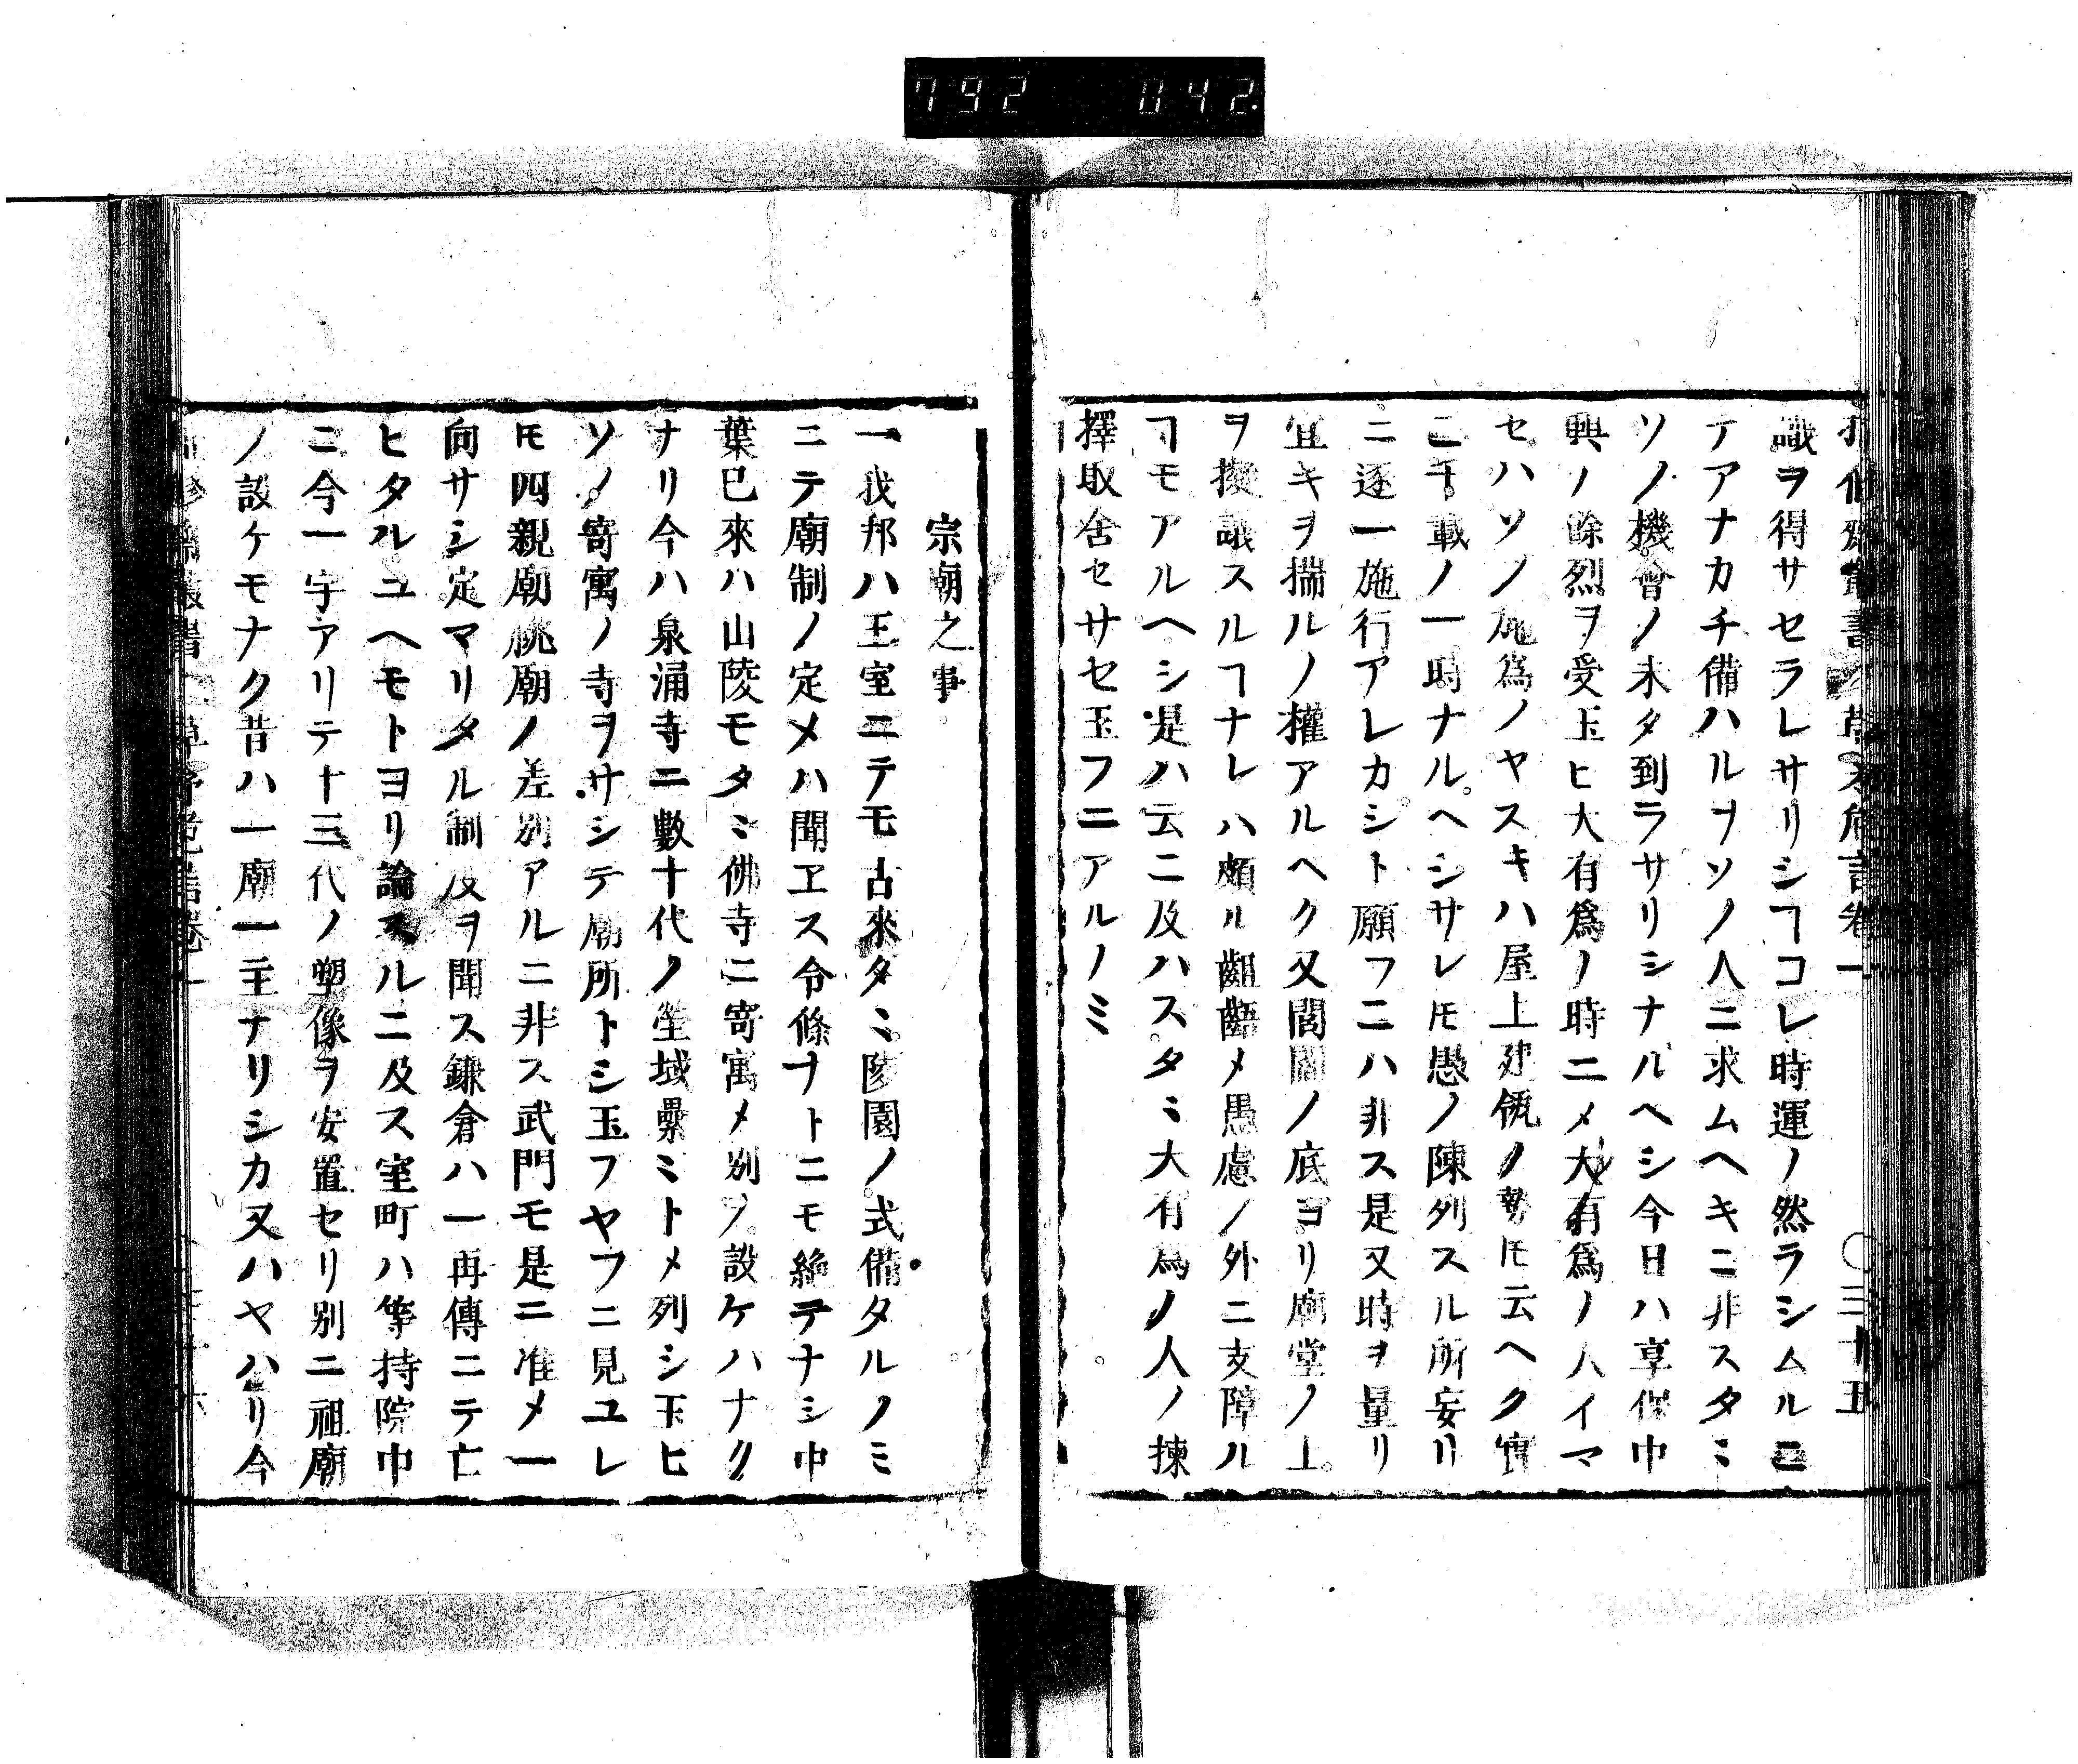 792 042
識ヲ得サセラレサリシヿコレ時運ノ然ラシムルニ
テアナカチ備ハルヲソノ人ニ求ムヘキニ非スタミ
ソノ機會ノ未タ到ラサリシナルヘシ今日ハ享保中
興ノ餘烈ヲ受玉ヒ大有爲ノ時ニメ大有爲ノ人イマ
セハソノ施爲ノヤスキハ屋上建瓴ノ勢モ云ヘク實
ニ千載ノ一時ナルヘシサレ𪜈愚ノ陳列スル所妄リ
ニ逐一施行アレカシト願フニハ非ス是又時ヲ量リ
宜キヲ揣ルノ權アルヘク又閭閻ノ底ヨリ廟堂ノ上
ヲ擬議スルヿナレハ頗ル齟齬メ愚慮ノ外ニ支障ル
ヿモアルヘシ是ハ云ニ及ハスタミ大有爲ノ人ノ揀
擇取舍セサセ玉フニアルノミ
宗廟之事
一我邦ハ王室ニテモ古來タミ陵園ノ式備タルノミ
ニテ廟制ノ定メハ聞ヱス令條ナトニモ絶テナシ中
葉已來ハ山陵モタミ佛寺ニ寄寓メ別ノ設ケハナク
ナリ今ハ泉涌寺ニ數十代ノ塋域纍ミトメ列シ玉ヒ
ソノ寄寓ノ寺ヲサシテ廟所トシ玉フヤフニ見ユレ
𪜈四親廟祧廟ノ差別アルニ非ス武門モ是ニ准メ一
向サシ定マリタル制度ヲ聞ス鎌倉ハ一再傳ニテ亡
ヒタルユヘモトヨリ論スルニ及ス室町ハ等持院中
ニ今一宇アリテ十三代ノ塑像ヲ安置セリ別ニ祖廟
ノ設ケモナク昔ハ一廟一主ナリシカ又ハヤハリ今